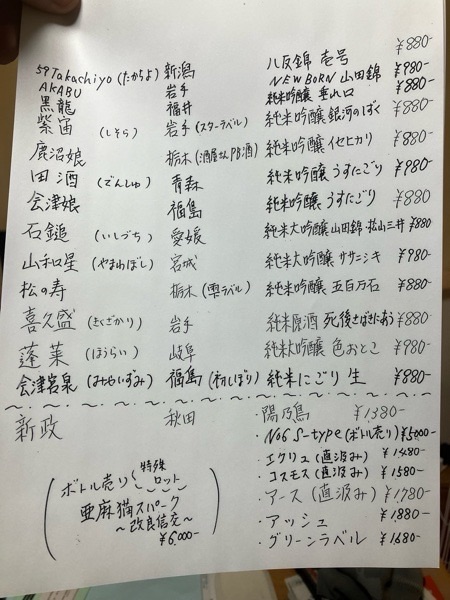 59Takachiyo (たかちよ) 新潟 八反錦 壱号 ¥880-
AKABU 岩手 NEWBORN 山田錦 ¥980-
黒龍 福井 純米吟醸 垂れ口 ¥880-
紫宙 (しそら) 岩手 (スターラベル) 純米吟醸 銀河のしずく ¥880-
鹿沼娘 栃木 (酒屋さんPB酒) 純米吟醸 イセヒカリ ¥880-
田酒 (でんしゅ) 青森 純米吟醸 うすにごり ¥980-
会津娘 福島 純米吟醸 うすにごり ¥880
石鎚 (いしづち) 愛媛 純米大吟醸 山田錦・松山三井 ¥880
山和星 (やまわぼし) 宮城 純米大吟醸 ササニシキ ¥980-
松の寿 栃木 (雫ラベル) 純米吟醸 五百万石 ¥880-
喜久盛 (きくざかり) 岩手 純米原酒 死後さばきにあう ¥880-
蓬莱 (ほうらい) 岐阜 純米大吟醸 色おとこ ¥980-
会津宮泉 (みやいずみ) 福島 (初しぼり) 純米にごり 生 ¥880-
新政 秋田 ・陽乃鳥 ¥1,380-
・NO6 S-type (ボトル売り) ¥5000-
・エクリュ (直汲み) ¥1,480-
・コスモス (直汲み) ¥1,580-
・アース (直汲み) ¥1,780-
・アッシュ ¥1,880-
・グリーンラベル ¥1,680-
ボトル売り 特殊ロット
亜麻猫スパーク
～改良信交～
¥6.000-